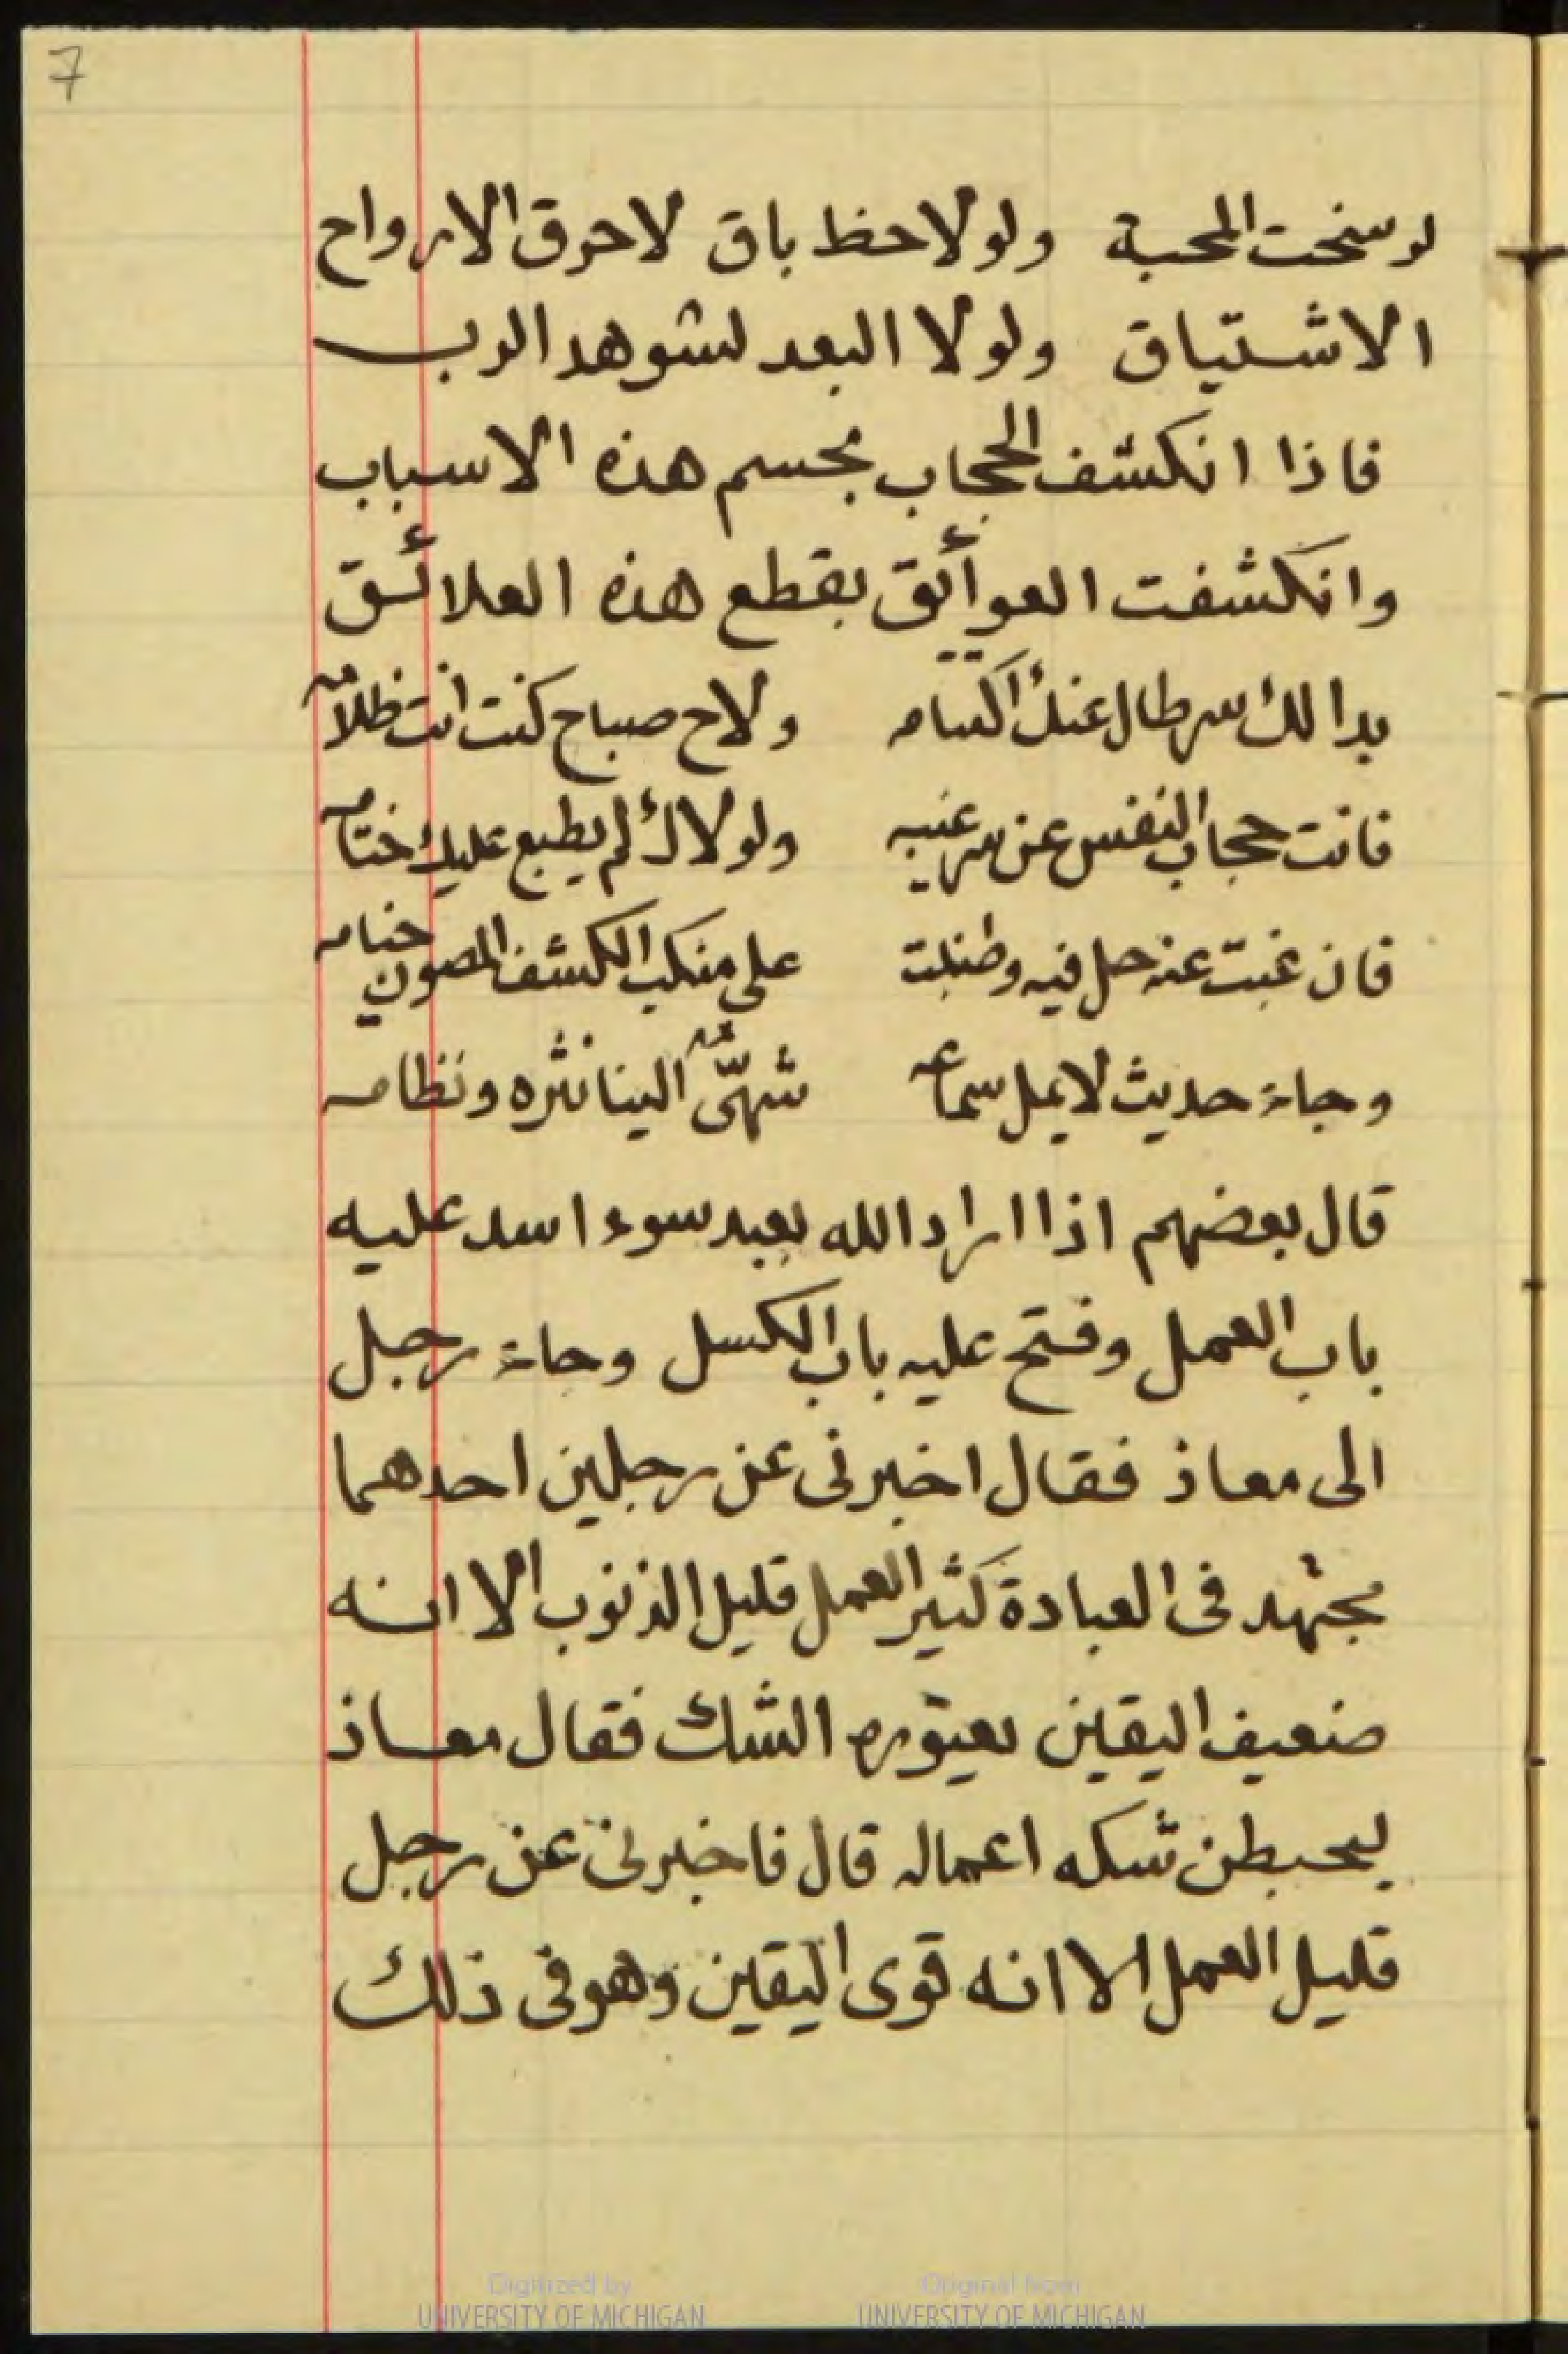 7
لرسخت المحبة ولولا حظ باق لاحرق الارواح
الاشتياق ولولا البعد لشوهد الرب
فاذا انكشف الحجاب بجسم هذه الاسباب
وانكشفت العوائق بقطع هذه العلائق
بدا لك سر طال عنك اكتتامه ولاح صباح كنت انت ظلامه
فانت حجاب النفس عن سر غيبه ولولاك لم يطبع عليك ختامه
فان غبت عنه حل فيه وطنبت على منكب الكشف المصون خيامه
وجاء حديث لا يمل سماعه شهىّ الينا نثره ونظامه
قال بعضهم اذا اراد الله بعبد سوء اسد عليه
باب العمل وفتح عليه باب الكسل وجاء رجل
الى معاذ فقال اخبرنى عن رجلين احدهما
مجتهد فى العبادة كثير العمل قليل الذنوب الا انه
ضعيف اليقين يعتوره الشك فقال معاذ
ليحبطن شكه اعماله قال فاخبرنى عن رجل
قليل العمل الا انه قوى اليقين وهو فى ذلك
Digitized by UNIVERSITY OF MICHIGAN
Original from UNIVERSITY OF MICHIGAN